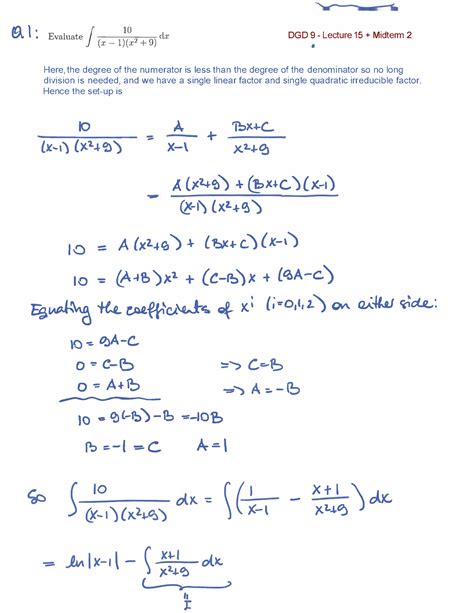 Q1: Evaluate ∫ 10/((x − 1)(x² + 9)) dx
DGD 9 - Lecture 15 + Midterm 2
Here, the degree of the numerator is less than the degree of the denominator so no long
division is needed, and we have a single linear factor and single quadratic irreducible factor.
Hence the set-up is
10/((x-1)(x²+9)) = A/(x-1) + (Bx+C)/(x²+9)
= (A(x²+9) + (Bx+C)(x-1))/((x-1)(x²+9))
10 = A(x²+9) + (Bx+C)(x-1)
10 = (A+B)x² + (C-B)x + (9A-C)
Equating the coefficients of xⁱ (i=0,1,2) on either side:
10 = 9A-C
0 = C-B => C=B
0 = A+B => A=-B
10 = 9(-B)-B = -10B
B = -1 = C A=1
So ∫ 10/((x-1)(x²+9)) dx = ∫ (1/(x-1) - (x+1)/(x²+9)) dx
= ln|x-1| - ∫ (x+1)/(x²+9) dx
=
I